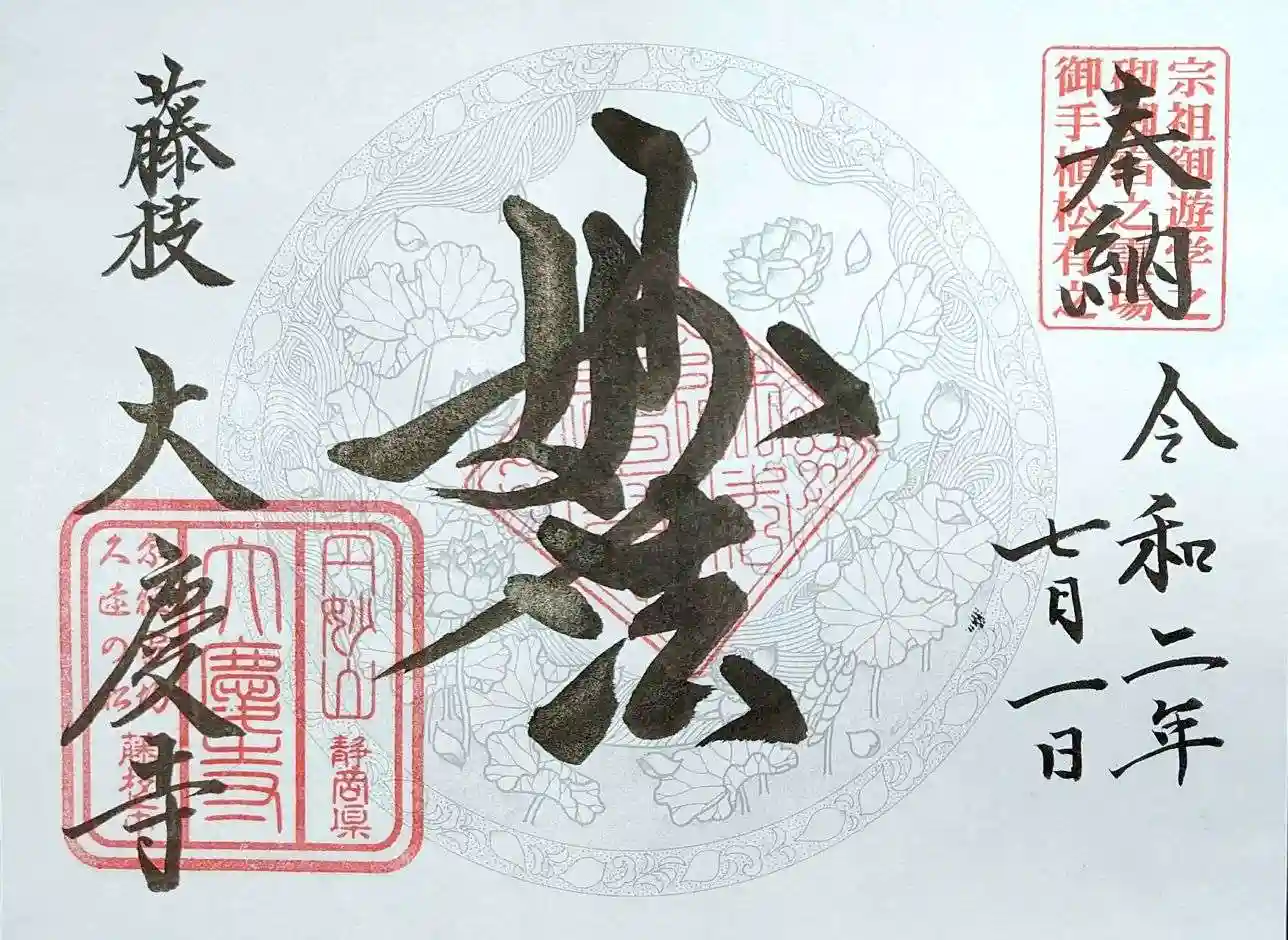 奉納
宗祖御遊学之
御手植松有之
令和二年
七月一日
妙法
藤枝
大慶寺
円妙山
静岡県
大慶寺
久遠の松
藤枝市